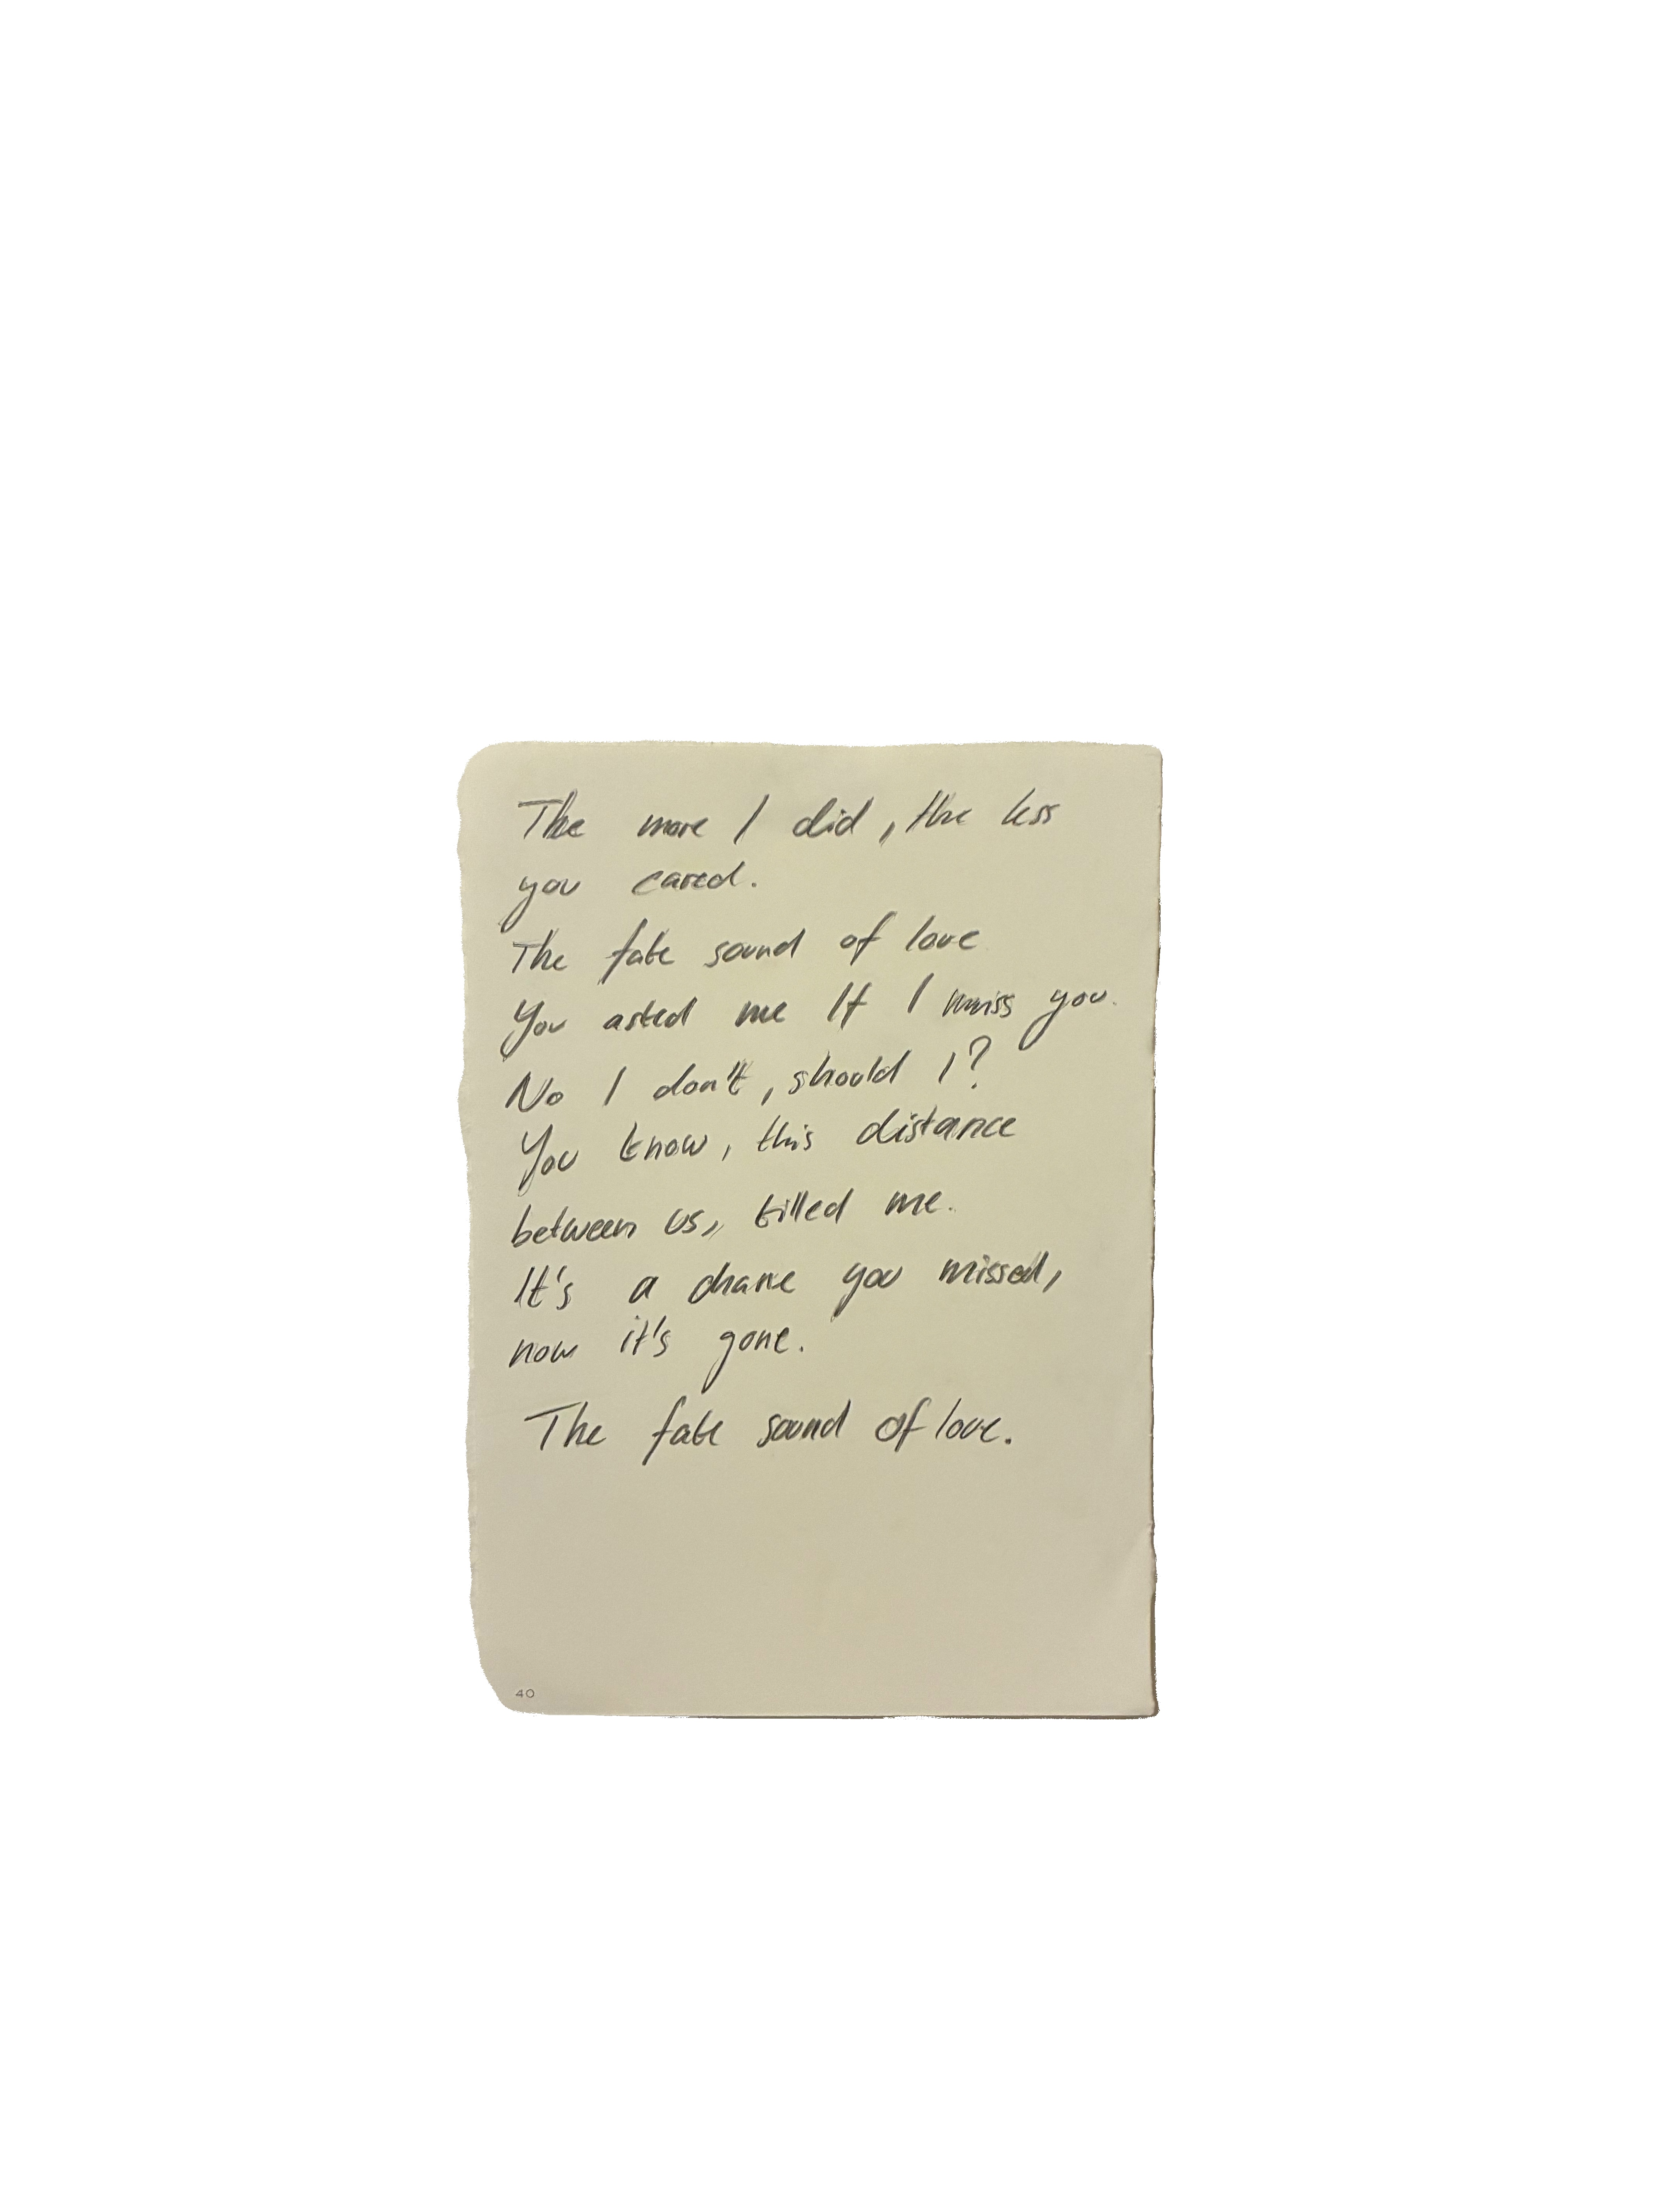 The more I did, the less
you cared.
The fake sound of love
You asked me If I miss you.
No I don't, should I?
You know, this distance
between us, killed me.
It's a chance you missed,
now it's gone.
The fake sound of love.
40